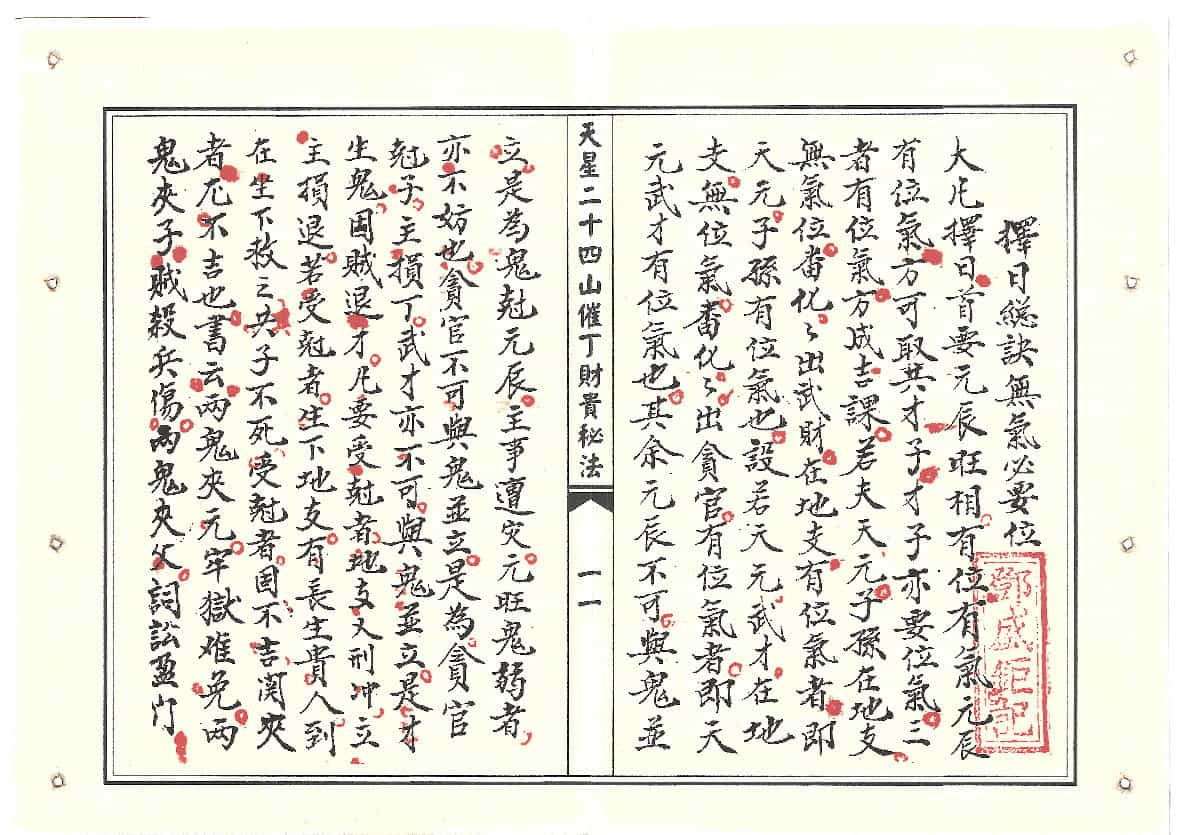 擇日總訣無氣必要位
大凡擇日首要元辰旺相有位有氣元辰
有位氣方可取其才子才子亦要位氣三
者有位氣方成吉課若夫天元子孫在地支
無氣位畨化々出武財在地支有位氣者即
天元子孫有位氣也設若天元武才在地
支無位氣畨化々出貪官有位氣者即天
元武才有位氣也其余元辰不可與鬼並
鄧成鉅記
天星二十四山催丁財貴秘法
一一
立是為鬼尅元辰主事遭灾元旺鬼弱者
亦不妨也貪官不可與鬼並立是為貪官
尅子主損丁武才亦不可與鬼並立是才
生鬼因賊退才凡要受尅者地支又刑冲立
主損退若受尅者生下地支有長生貴人到
在坐下救之其子不死受尅者固不吉関夾
者尤不吉也書云兩鬼夾元牢獄难免兩
鬼夾子賊殺兵傷兩鬼夾父詞訟盈门